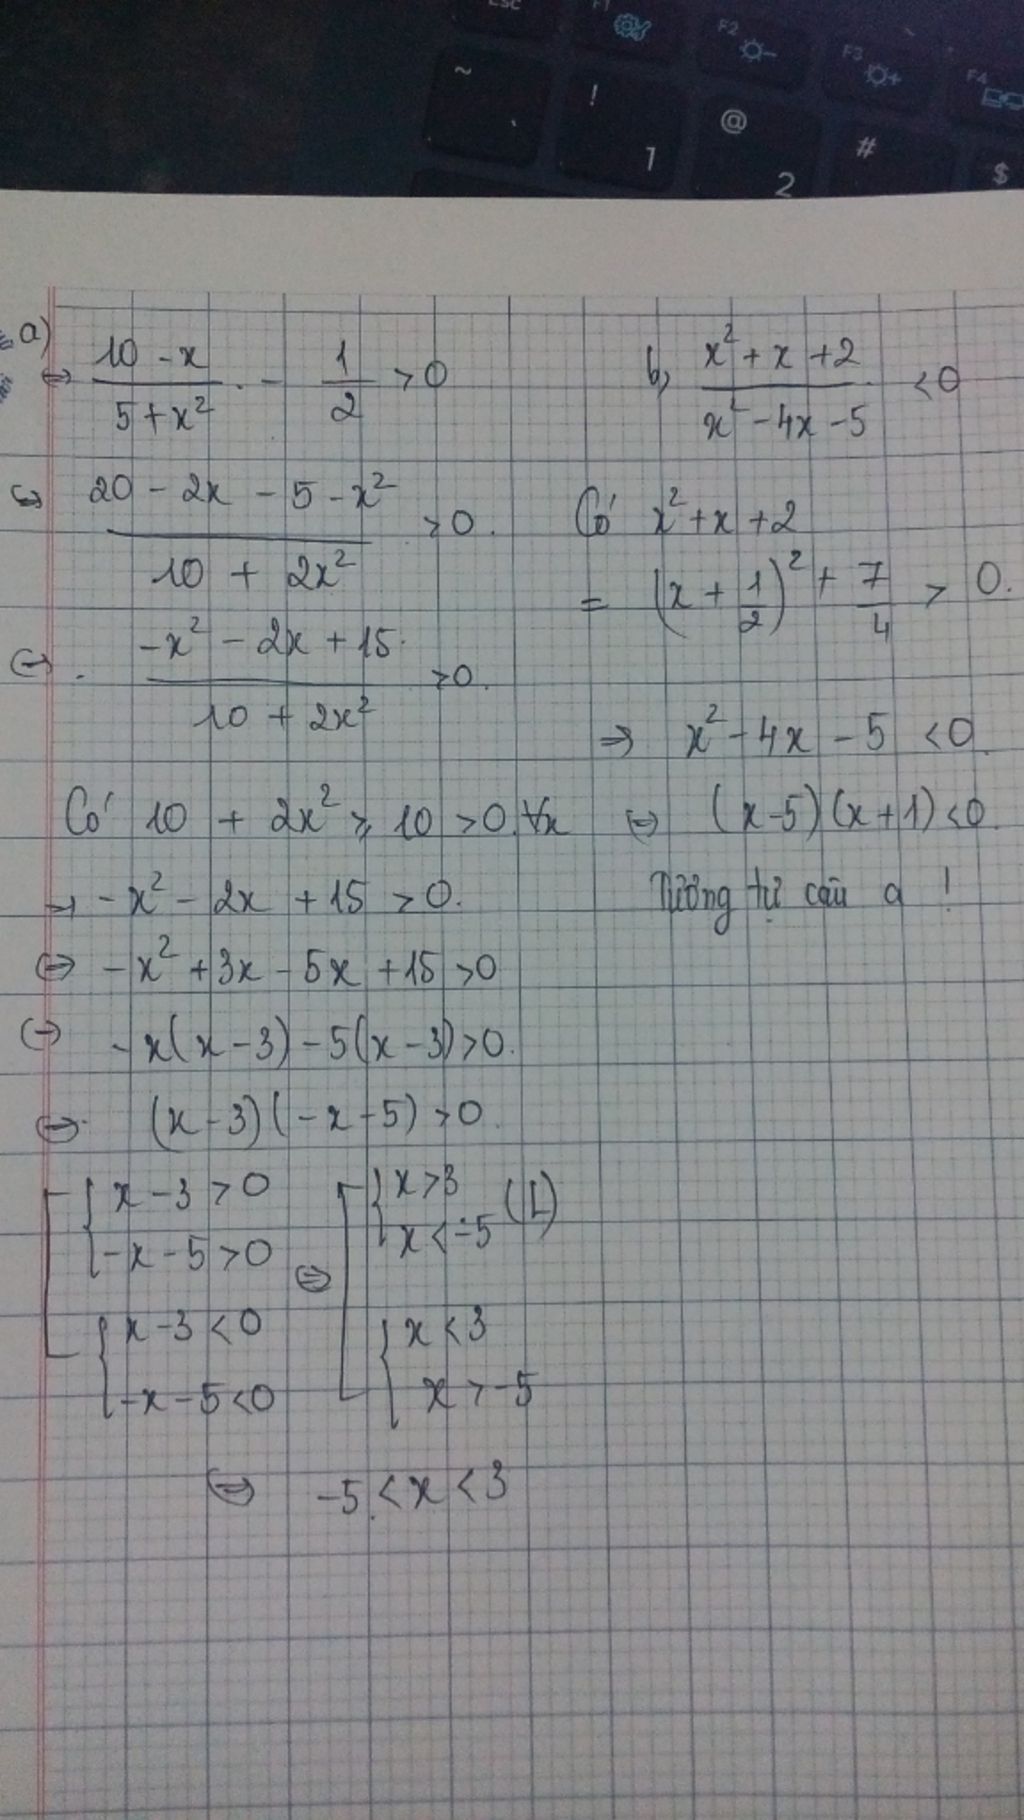 Esc F1 F2 F3 F4
~ ` ! 1 @ 2 # $
a)
⇔ (10 - x)/(5 + x²) - 1/2 > 0
⇔ (20 - 2x - 5 - x²)/(10 + 2x²) > 0.
⇔ (-x² - 2x + 15)/(10 + 2x²) > 0.
Có 10 + 2x² ≥ 10 > 0 ∀x
→ -x² - 2x + 15 > 0.
⇔ -x² + 3x - 5x + 15 > 0
⇔ -x(x - 3) - 5(x - 3) > 0.
⇔ (x - 3)(-x - 5) > 0.
[ { x - 3 > 0
-x - 5 > 0
{ x - 3 < 0
-x - 5 < 0
⇔ [ { x > 3
x < -5 (L)
{ x < 3
x > -5
⇔ -5 < x < 3
b, (x² + x + 2)/(x² - 4x - 5) < 0
Có x² + x + 2
= (x + 1/2)² + 7/4 > 0.
⇒ x² - 4x - 5 < 0.
⇔ (x - 5)(x + 1) < 0.
Tương tự câu a !